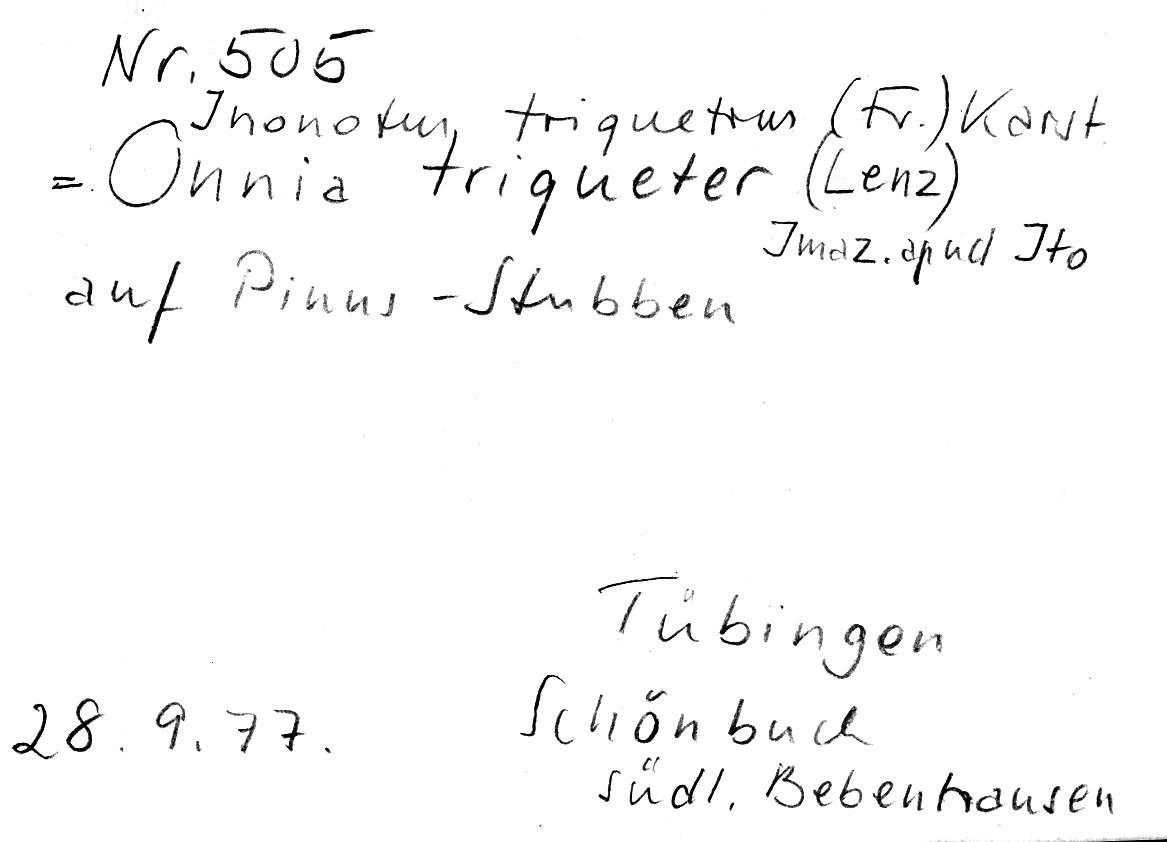 Nr. 505
Inonotus triquetrus (Fr.) Karst
= Onnia triqueter (Lenz)
Imaz. apud Ito
auf Pinus - Stubben
Tübingen
28. 9. 77. Schönbuch
südl. Bebenhausen